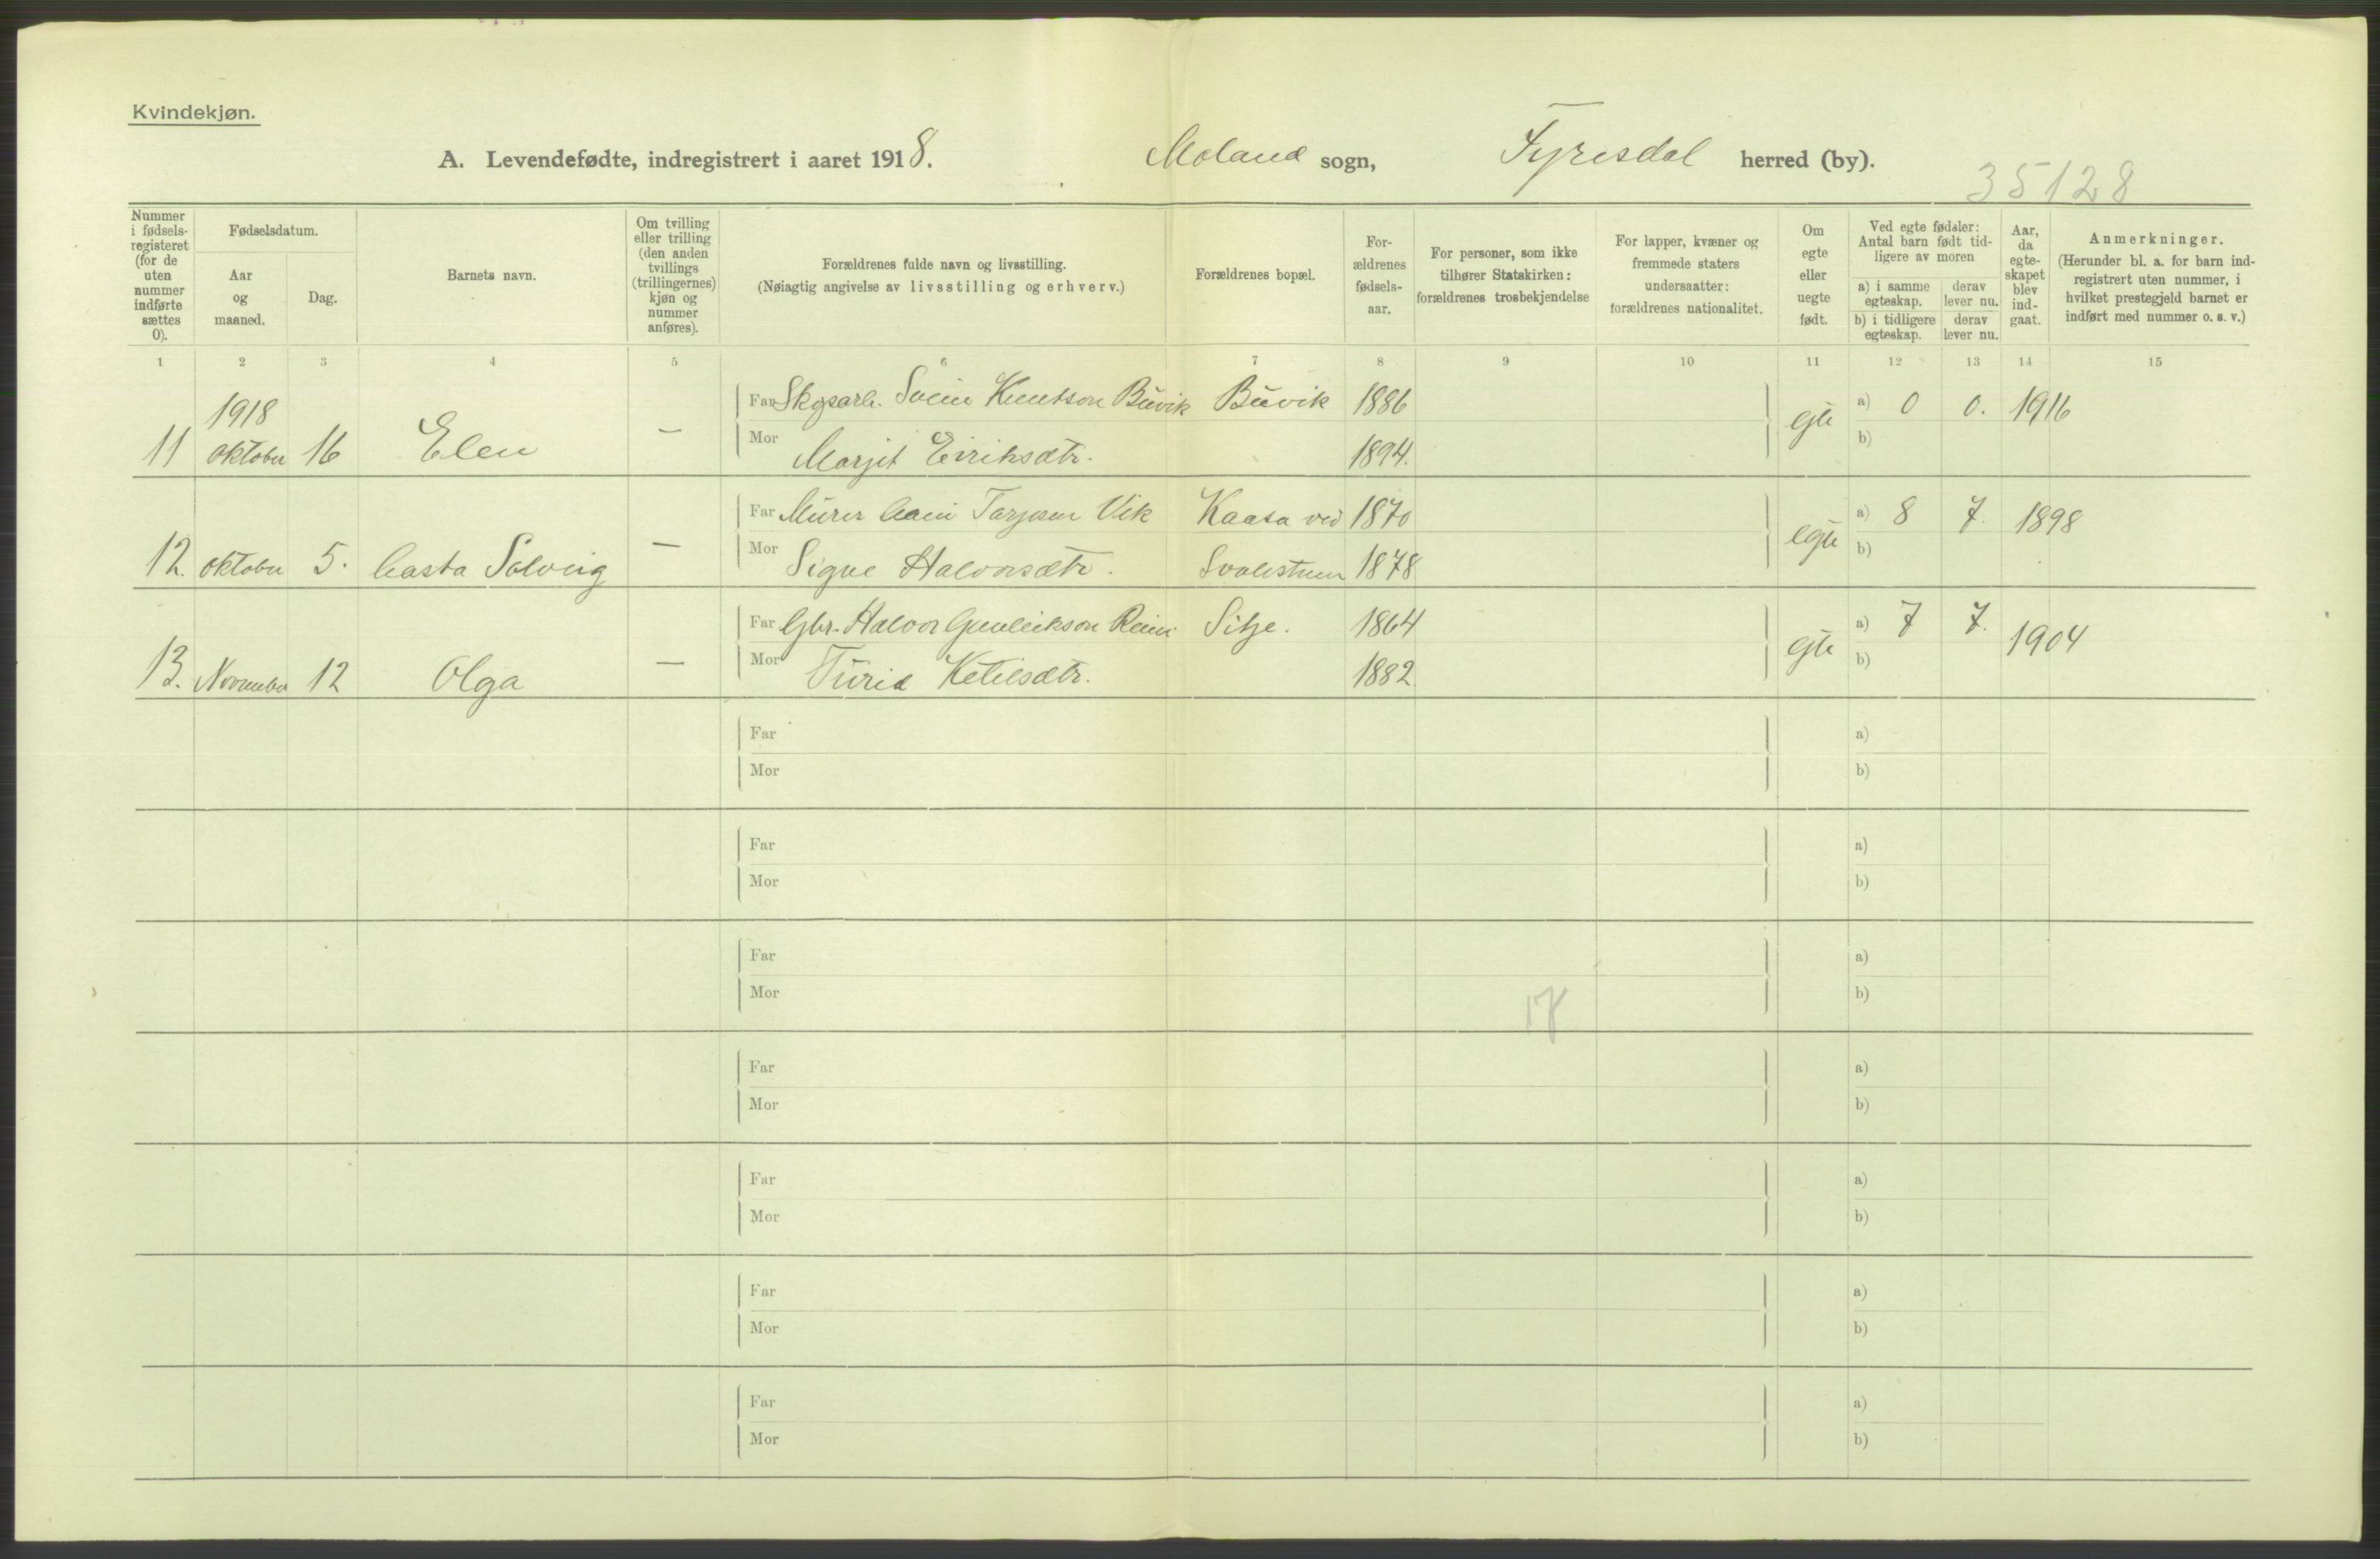 Kvindekjøn.
A. Levendefødte, indregistrert i aaret 1918. Moland sogn, Fyresdal herred (by).
35128
Nummer i fødsels-registeret (for de uten nummer indførte sættes 0).
Fødselsdatum.
Aar og maaned.
Dag.
Barnets navn.
Om tvilling eller trilling (den anden tvillings (trillingernes) kjøn og nummer anføres).
Forældrenes fulde navn og livsstilling.
(Nøiagtig angivelse av livsstilling og erhverv.)
Forældrenes bopæl.
For-ældrenes fødsels-aar.
For personer, som ikke tilhører Statskirken: forældrenes trosbekjendelse
For lapper, kvæner og fremmede staters undersaatter: forældrenes nationalitet.
Om egte eller uegte født.
Ved egte fødsler: Antal barn født tid-ligere av moren
a) i samme egteskap. derav lever nu.
b) i tidligere egteskap. derav lever nu.
Aar, da egte-skapet blev ind-gaat.
Anmerkninger.
(Herunder bl. a. for barn ind-registrert uten nummer, i hvilket prestegjeld barnet er indført med nummer o. s. v.)
1 2 3 4 5 6 7 8 9 10 11 12 13 14 15
1918
Far Skogsarb. Svein Knutson Buvik Buvik 1886 a) 0 0. 1916
11 Oktober 16 Elen — Mor Margit Eiriksdtr. 1894. egte b)
Far Murer Tarjeisen Vik Kaasa ved 1870 a) 8 7. 1898
12. Oktober 5. Aasta Solveig — Mor Signe Halvorsdtr. 1878 egte b)
Far Gbr. Halvor Gunleikson Sitje. 1864 a) 7 7. 1904
13. November 12 Olga — Mor Turid Ketilsdtr. 1882. egte b)
Far a)
Mor b)
Far a)
Mor b)
Far a)
Mor b)
17
Far a)
Mor b)
Far a)
Mor b)
Far a)
Mor b)
Far a)
Mor b)